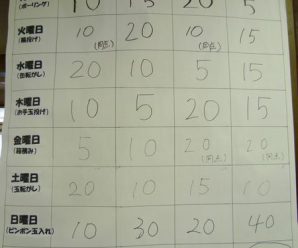 (ボーリング) 10 15 20 5
火曜日 10 20 10 15
(輪投げ)
水曜日 20 10 5 15
(缶転がし)
木曜日 10 5 20 15
(お手玉投げ)
金曜日 5 10 20 20
土曜日 20 10 15 10
(玉転がし)
日曜日 10 30 20 40
(ピンポン玉入れ)